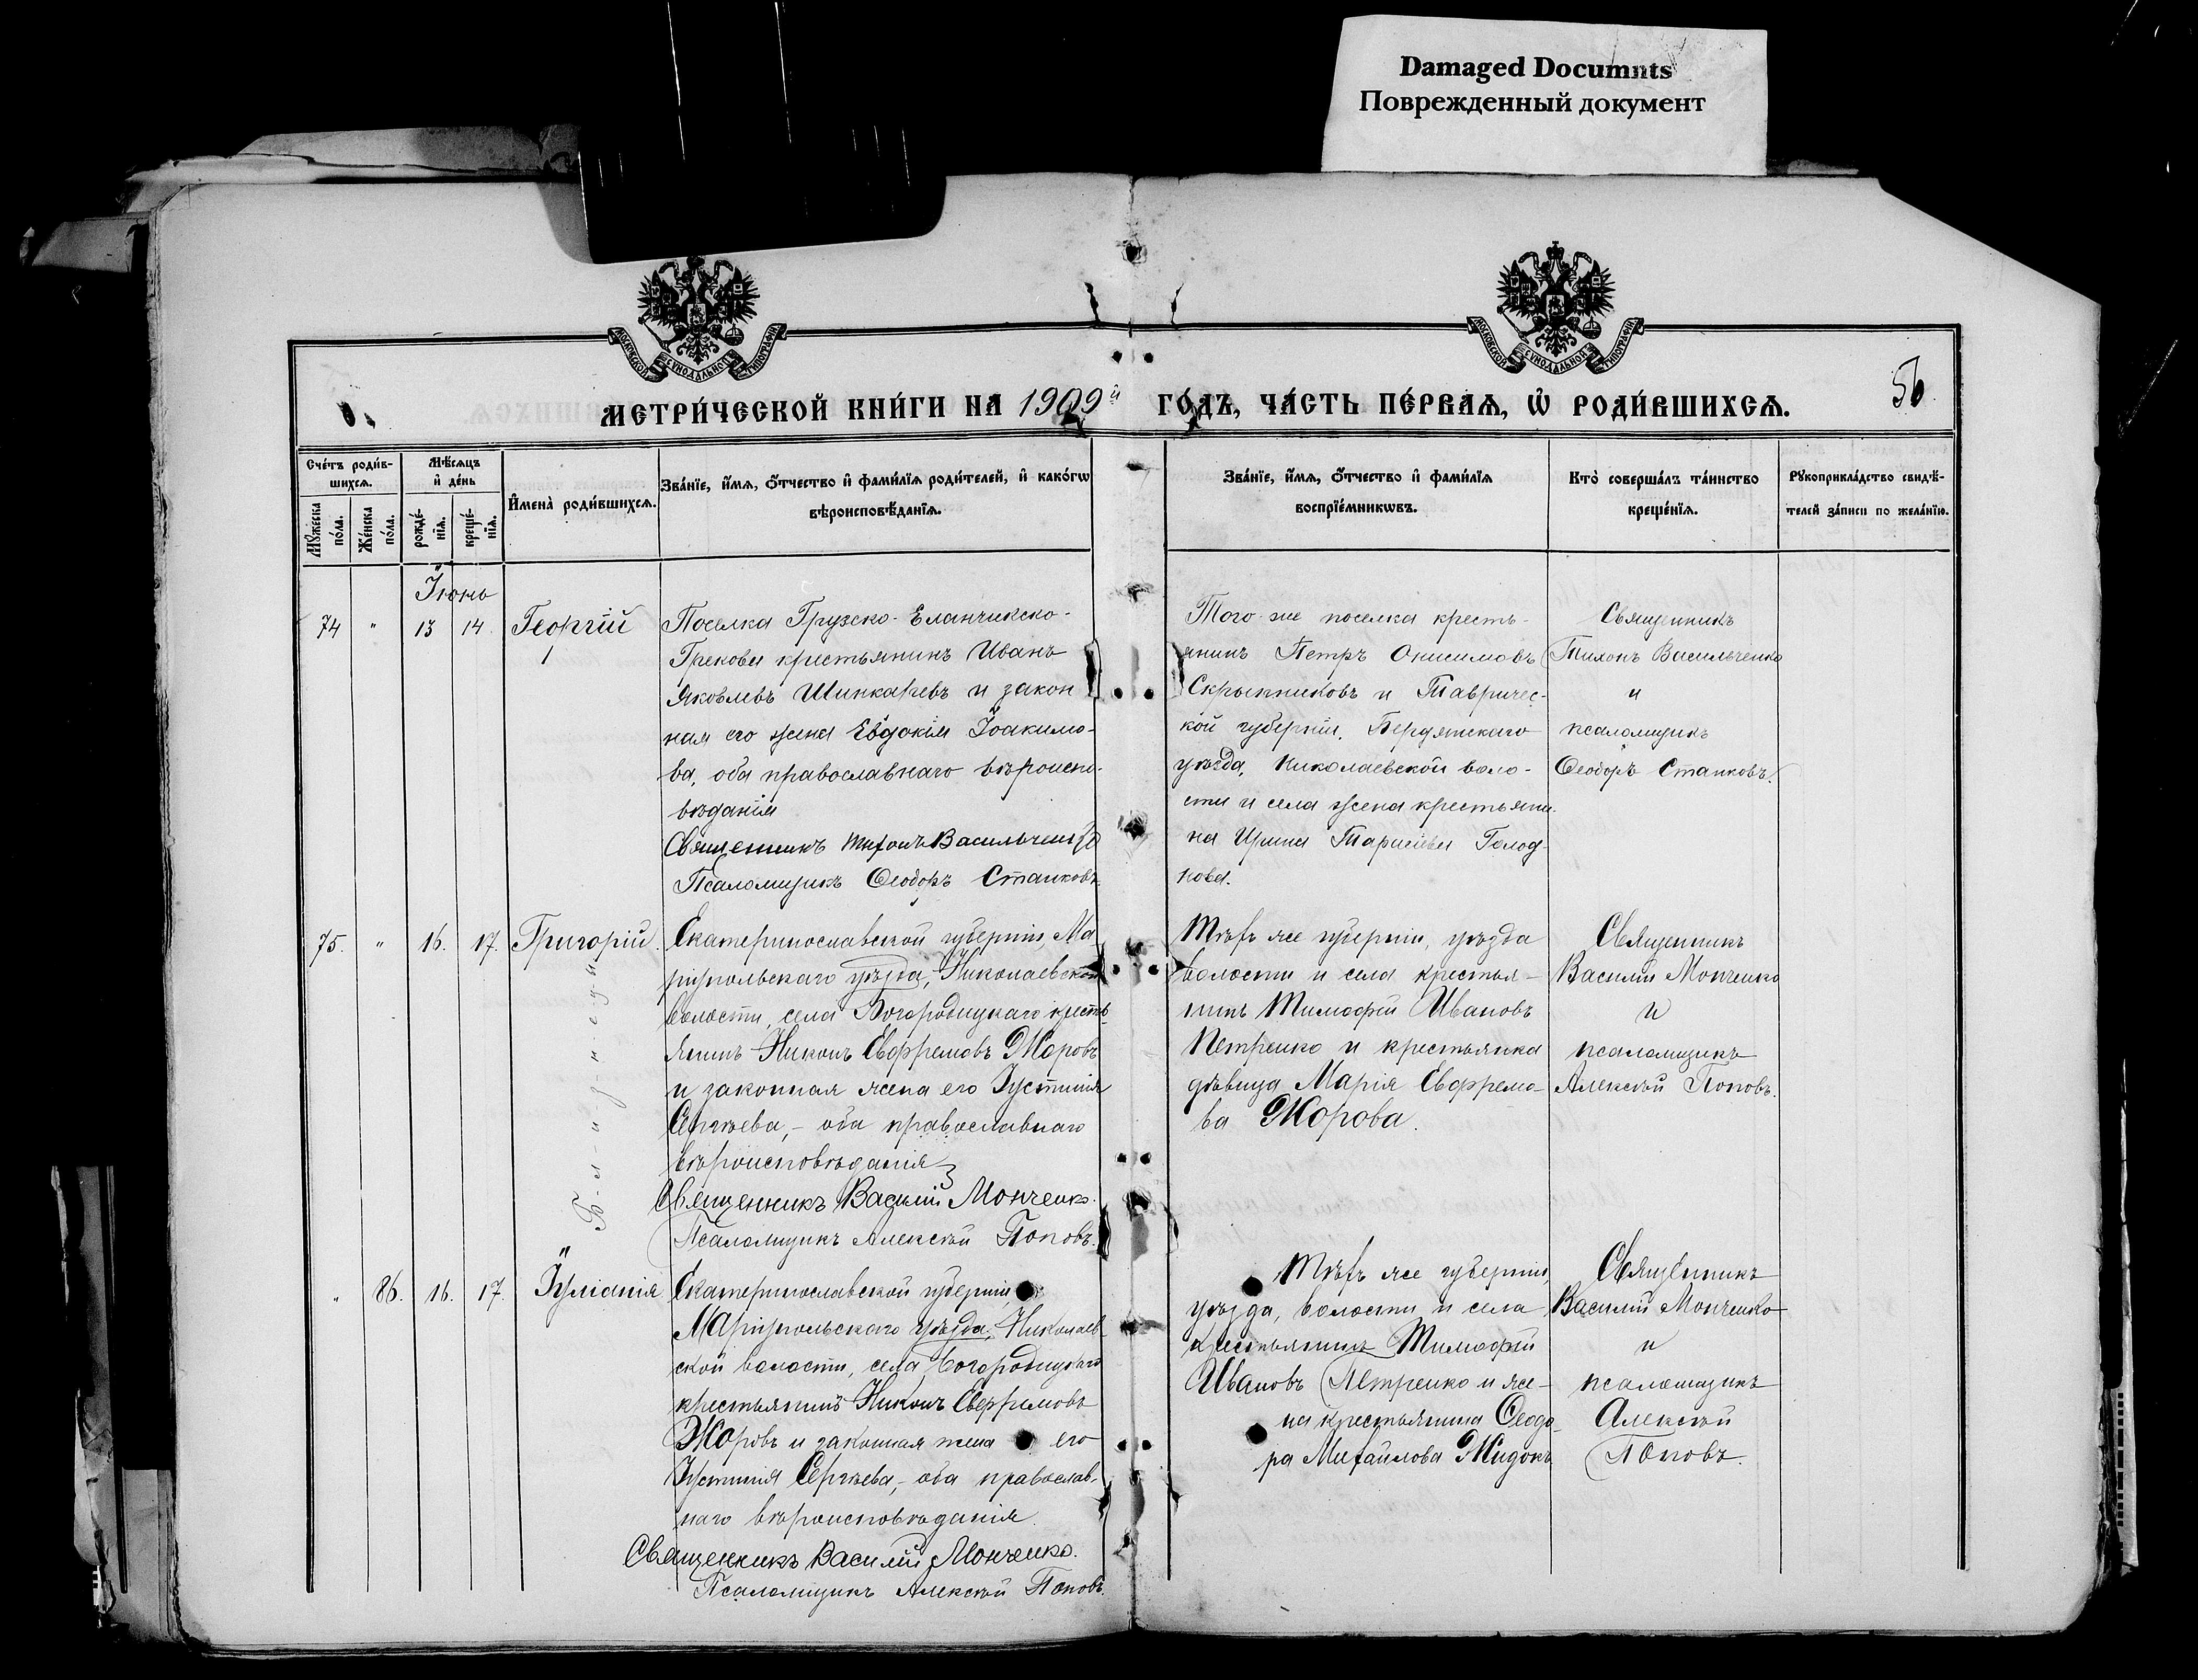 Damaged Documnts
Поврежденный документ
МОСКОВСКОЙ СѴНОДАЛЬНОЙ ТИПОГРАФІИ
МОСКОВСКОЙ СѴНОДАЛЬНОЙ ТИПОГРАФІИ
МЕТРИ́ЧЕСКОЙ КНИ́ГИ НА 1909й ГО́ДЪ, ЧА́СТЬ ПЕ́РВАЯ, Ѡ РОДИ́ВШИХСЯ.
56
Сче́тъ роди́в-
шихся.
Му́жеска по́ла.
Же́нска по́ла.
Мѣ́сяцъ и де́нь
рожде́-нія.
креще́-нія.
Имена̀ роди́вшихся.
Зва́ніе, и́мя, о́тчество и фами́лія роди́телей, и како́гѡ
вѣроисповѣ́данія.
Зва́ніе, и́мя, о́тчество и фами́лія
воспріе́мникѡвъ.
Кто̀ соверша́лъ та́инство
креще́нія.
Рукоприкла́дство свидѣ́-
телей за́писи по жела́нію.
Іюнь
74 " 13 14. Георгій
1
Поселка Грузско-Еланчикско-
Грекова крестьянинъ Иванъ
Яковлевъ Шинкаревъ и закон
ная его жена Евдокія Іоакимо-
ва, оба православнаго вѣроиспо-
вѣданія
Священникъ Тихонъ Васильченко
Псаломщикъ Ѳеодоръ Станковъ.
Того-же поселка кресть-
янинъ Петръ Онисимовъ
Скрынниковъ и Тавричес-
кой губерніи, Бердянскаго
уѣзда, Николаевской воло-
сти и села жена крестьяни-
на Ирина Тарасіева Голод-
нова.
Священникъ
Тихонъ Васильченко
и
псаломщикъ
Ѳеодоръ Станковъ.
75. " 16. 17. Григорій
Б-л-и-з-н-е-ц-ы
Екатеринославской губерніи, Ма
ріупольскаго уѣзда, Николаевской
волости, села Богородицкаго кресть-
янинъ Никонъ Евфремовъ Жоровъ
и законная жена его Іустинія
Сергѣева,- оба православнаго
вѣроисповѣданія
Священникъ Василій Мончеико.
Псаломщикъ Алексѣй Поповъ.
Тѣхъ же губерніи, уѣзда
волости и села крестья-
нинъ Тимофей Ивановъ
Петренко и крестьянка
дѣвица Марія Евфремо-
ва Жорова.
Священникъ
Василій Монченко
и
псаломщикъ
Алексѣй Поповъ.
" 86. 16. 17. Іуліанія
Екатеринославской губерніи,
Маріупольскаго уѣзда, Николаев-
ской волости, села Богородицкаго
крестьянинъ Никонъ Евфремовъ
Жоровъ и законная жена его
Іустинія Сергѣева,- оба православ-
наго вѣроисповѣданія.
Священникъ Василій Монченко.
Псаломщикъ Алексѣй Поповъ.
Тѣхъ же губерніи,
уѣзда, волости и села
крестьянинъ Тимофей
Ивановъ Петренко и же-
на крестьянина Ѳеодо-
ра Михайлова Жидокъ
Священникъ
Василій Монченко
и
псаломщикъ
Алексѣй
Поповъ.